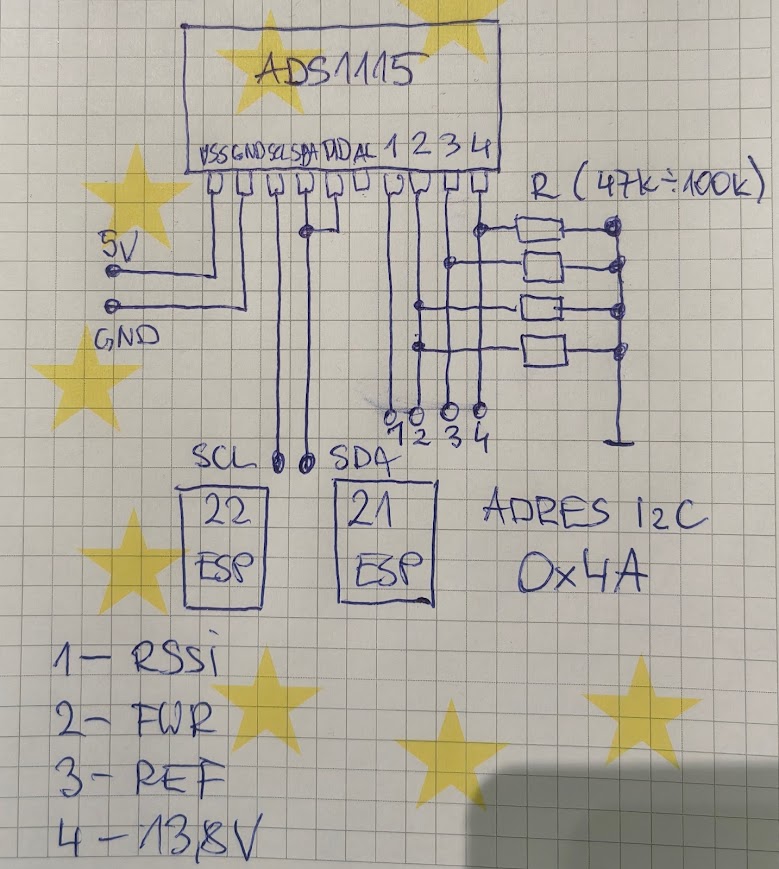 ADS1115
VSS GND SCL SDA ADD AL 1 2 3 4
R (47k÷100k)
5V
GND
1 2 3 4
SCL SDA
22 21
ESP ESP
ADRES I2C
0x4A
1 – RSSi
2 – FWR
3 – REF
4 – 13,8V